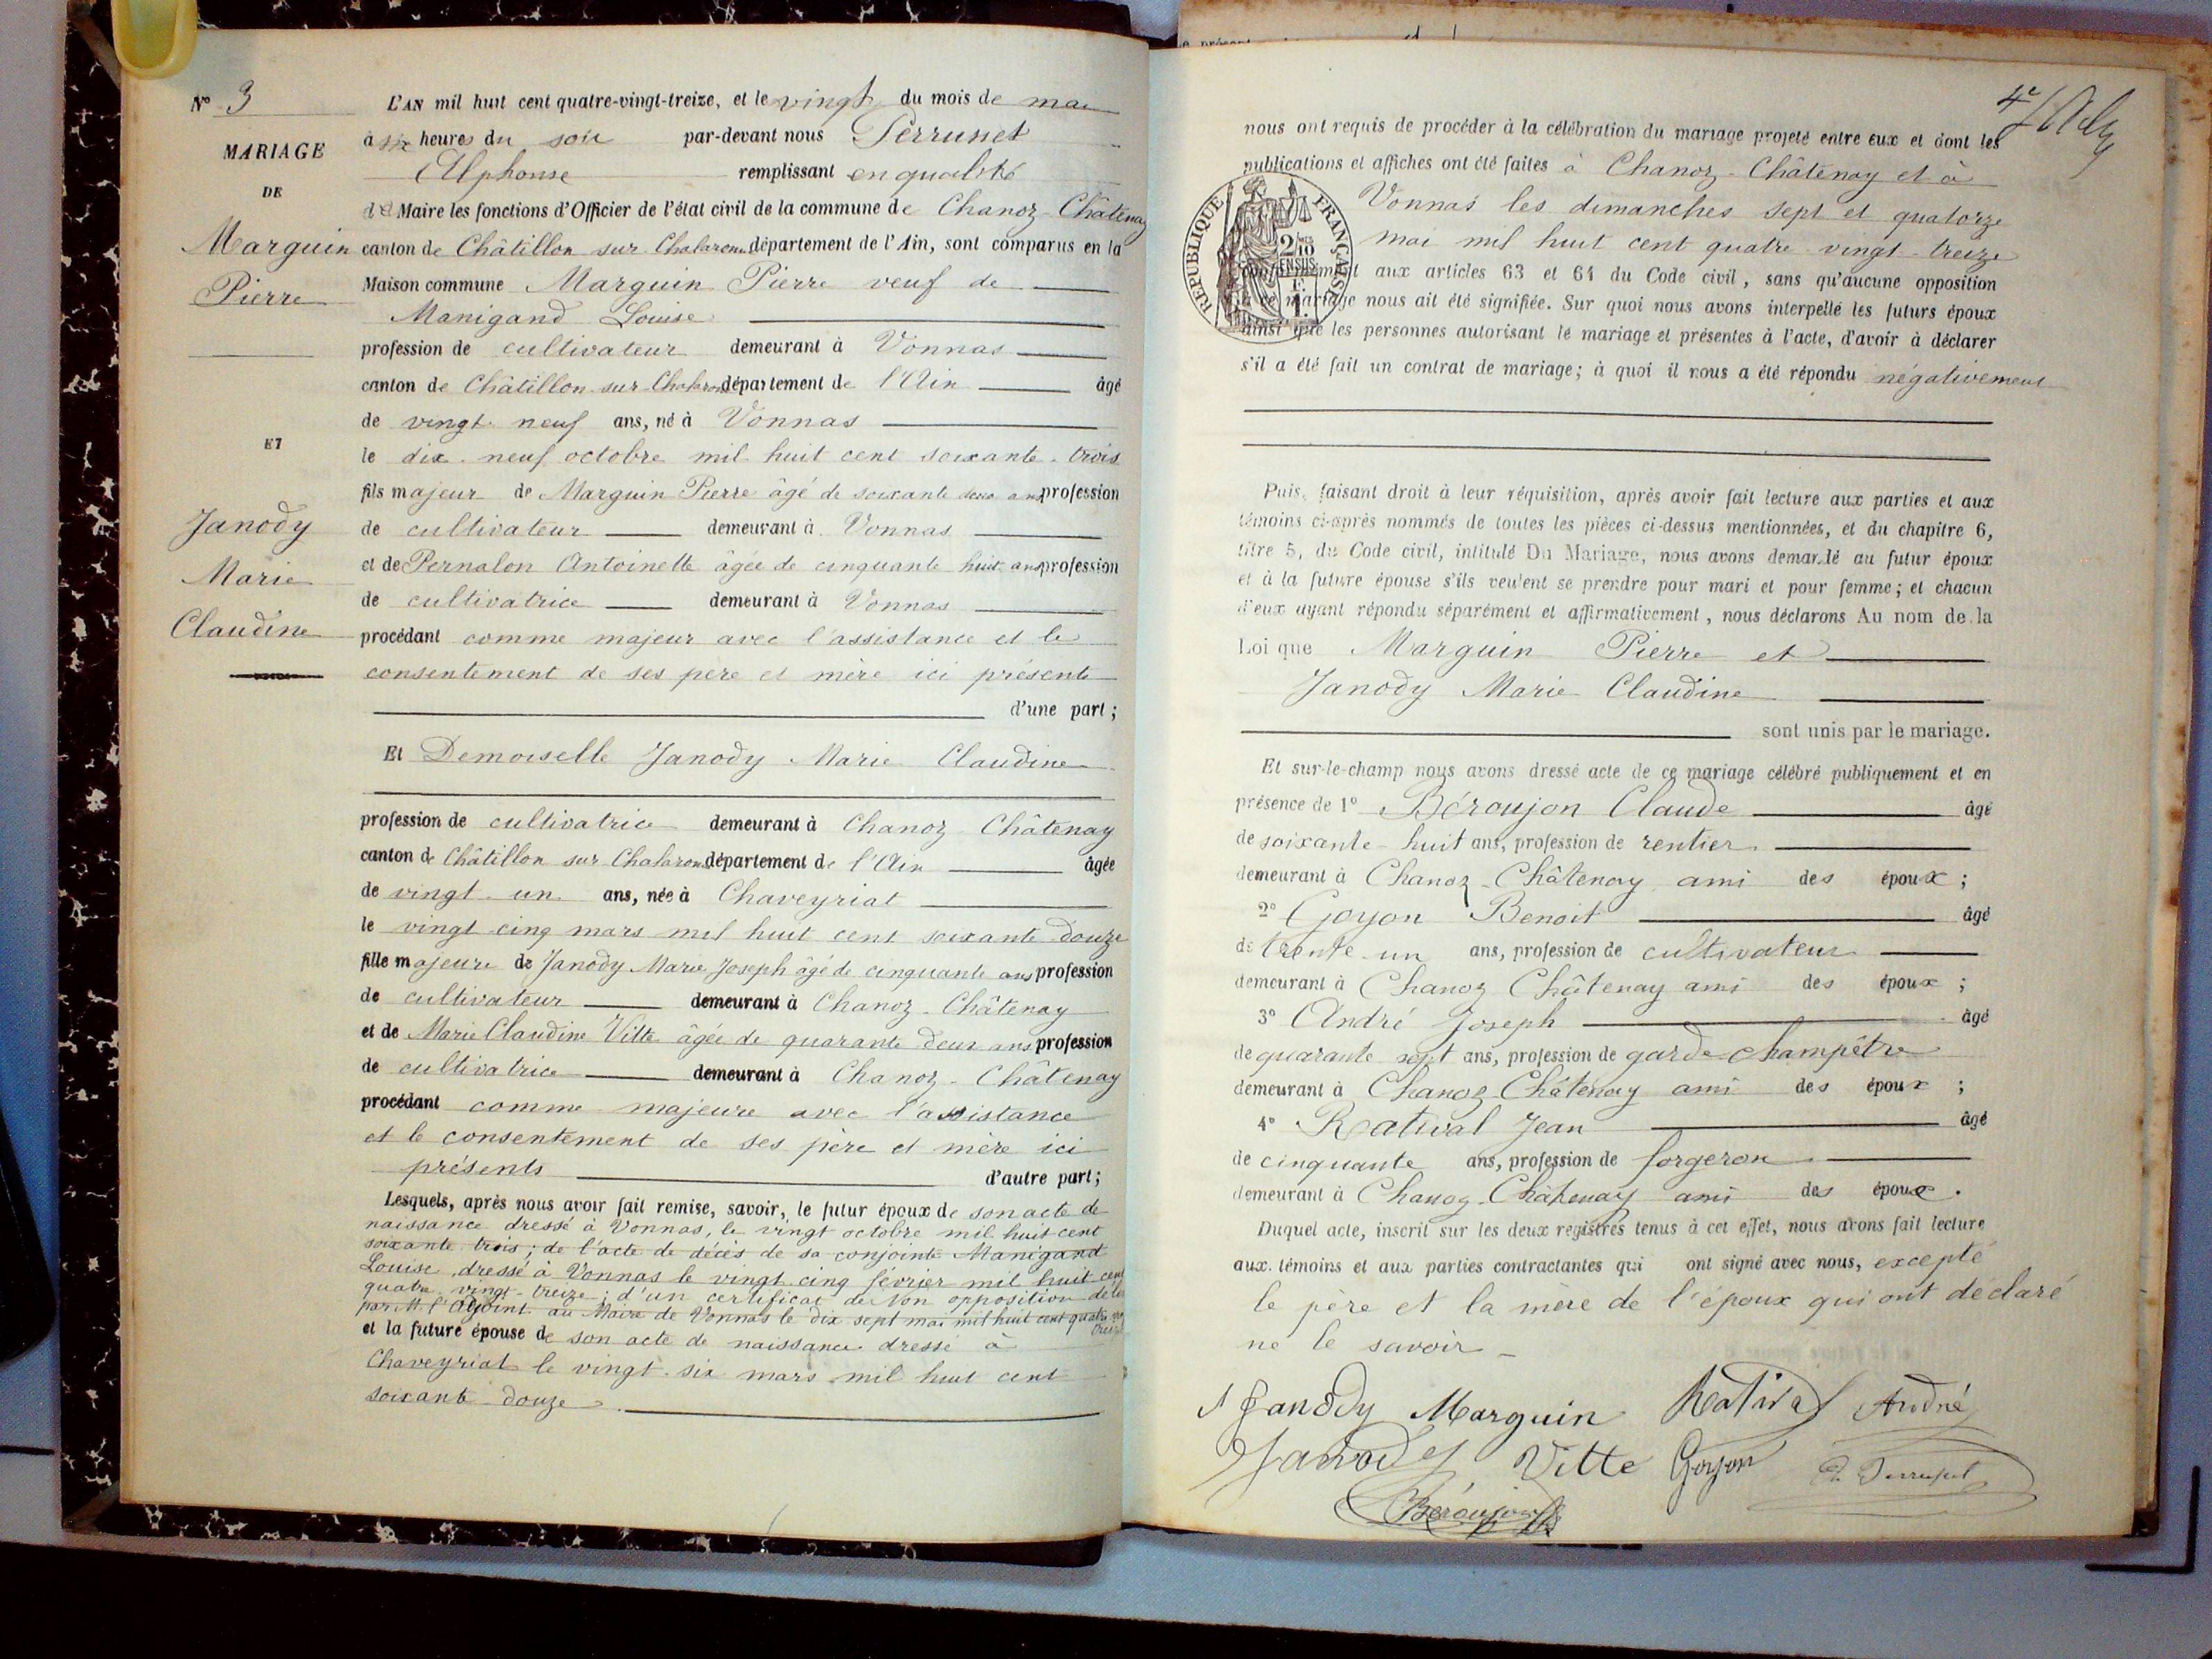 N° 3
MARIAGE
DE
Marguin
Pierre
ET
Janody
Marie
Claudine
L'AN mil huit cent quatre-vingt-treize, et le vingt du mois de mai
à six heures du soir par-devant nous Perrunet
Alphonse remplissant en qualité
de Maire les fonctions d'Officier de l'état civil de la commune de Chanoz-Châtenay
canton de Châtillon sur Chalaronne département de l'Ain, sont comparus en la
Maison commune Marguin Pierre veuf de
Manigand Louise
profession de cultivateur demeurant à Vonnas
canton de Châtillon-sur-Chalaronne département de l'Ain âgé
de vingt-neuf ans, né à Vonnas
le dix-neuf octobre mil huit cent soixante-trois
fils majeur de Marguin Pierre âgé de soixante ans profession
de cultivateur demeurant à Vonnas
et de Pernalon Antoinette âgée de cinquante huit ans profession
de cultivatrice demeurant à Vonnas
procédant comme majeur avec l'assistance et le
consentement de ses père et mère ici présents
d'une part;
Et Demoiselle Janody Marie Claudine
profession de cultivatrice demeurant à Chanoz-Châtenay
canton de Châtillon sur Chalaronne département de l'Ain âgée
de vingt-un ans, née à Chaveyriat
le vingt-cinq mars mil huit cent soixante-douze
fille majeure de Janody Marie Joseph âgé de cinquante ans profession
de cultivateur demeurant à Chanoz-Châtenay
et de Marie Claudine Vitte âgée de quarante deux ans profession
de cultivatrice demeurant à Chanoz-Châtenay
procédant comme majeure avec l'assistance
et le consentement de ses père et mère ici
présents d'autre part;
Lesquels, après nous avoir fait remise, savoir, le futur époux de son acte de
naissance dressé à Vonnas, le vingt octobre mil huit cent
soixante trois; de l'acte de décès de sa conjointe Manigand
Louise, dressé à Vonnas le vingt cinq février mil huit cent
quatre-vingt-treize; d'un certificat de Non opposition
par M. l'Adjoint au Maire de Vonnas le dix sept mai mil huit cent quatre
et la future épouse de son acte de naissance dressé à
Chaveyriat le vingt-six mars mil huit cent
soixante-douze
4e
nous ont requis de procéder à la célébration du mariage projeté entre eux et dont les
publications et affiches ont été faites à Chanoz-Châtenay et à
Vonnas les dimanches sept et quatorze
mai mil huit cent quatre vingt-treize
conformément aux articles 63 et 64 du Code civil, sans qu'aucune opposition
à ce mariage nous ait été signifiée. Sur quoi nous avons interpellé les futurs époux
ainsi que les personnes autorisant le mariage et présentes à l'acte, d'avoir à déclarer
s'il a été fait un contrat de mariage; à quoi il nous a été répondu négativement
RÉPUBLIQUE FRANÇAISE
2/10
EN SUS
1 F.
Puis, faisant droit à leur réquisition, après avoir fait lecture aux parties et aux
témoins ci-après nommés de toutes les pièces ci-dessus mentionnées, et du chapitre 6,
titre 5, du Code civil, intitulé Du Mariage, nous avons demandé au futur époux
et à la future épouse s'ils veulent se prendre pour mari et pour femme; et chacun
d'eux ayant répondu séparément et affirmativement, nous déclarons Au nom de la
Loi que Marguin Pierre et
Janody Marie Claudine
sont unis par le mariage.
Et sur-le-champ nous avons dressé acte de ce mariage célébré publiquement et en
présence de 1° Béroujon Claude âgé
de soixante-huit ans, profession de rentier
demeurant à Chanoz-Châtenay ami des époux;
2° Goyon Benoit âgé
de trente-un ans, profession de cultivateur
demeurant à Chanoz Châtenay ami des époux;
3° André Joseph âgé
de quarante sept ans, profession de garde-champêtre
demeurant à Chanoz-Châtenay ami des époux;
4° Ratival Jean âgé
de cinquante ans, profession de forgeron
demeurant à Chanoz-Châtenay ami des époux.
Duquel acte, inscrit sur les deux registres tenus à cet effet, nous avons fait lecture
aux témoins et aux parties contractantes qui ont signé avec nous, excepté
le père et la mère de l'époux qui ont déclaré
ne le savoir
Janody Marguin Ratival André
Janody Vitte Goyon Perrunet
Béroujon